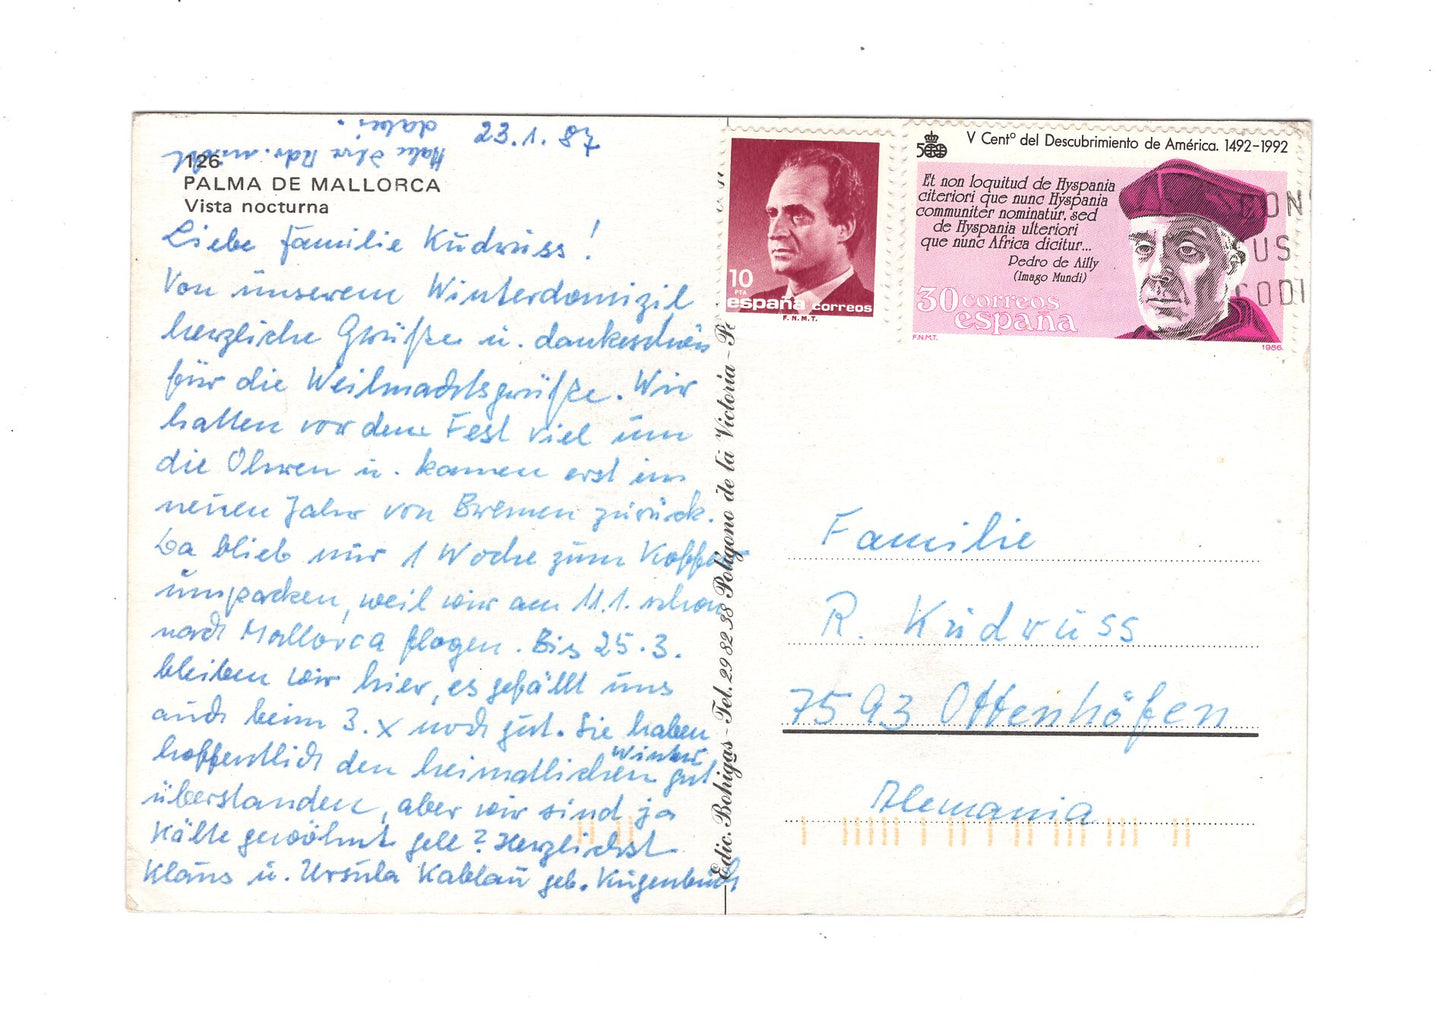 23.1.87
Habe Ihre Adr. nicht
dabei.
126
PALMA DE MALLORCA
Vista nocturna
Liebe Familie Kudruss!
Von unserem Winterdomizil
herzliche Grüße u. dankeschön
für die Weihnachtsgrüße. Wir
hatten vor dem Fest viel um
die Ohren u. kamen erst im
neuen Jahr von Bremen zurück.
Da blieb nur 1 Woche zum Koffer
umpacken, weil wir am 11.1. schon
nach Mallorca flogen. Bis 25.3.
bleiben wir hier, es gefällt uns
auch beim 3. x noch gut. Sie haben
hoffentlich den heimatlichen Winter gut
überstanden, aber wir sind ja
Kälte gewöhnt gell? Herzlichst
Klaus u. Ursula Kablau geb. Kugenbuch
Edic. Bohigas - Tel. 29 82 38 Polígono de la Victoria -
10
PTA
españa correos
F.N.M.T.
500
V Centº del Descubrimiento de América. 1492-1992
Et non loquitud de Hyspania
citeriori que nunc Hyspania
communiter nominatur, sed
de Hyspania ulteriori
que nunc Africa dicitur...
Pedro de Ailly
(Imago Mundi)
30 correos
españa
F.N.M.T.
1986
CON
SUS
CODI
Familie
R. Kudruss
7593 Ottenhöfen
Alemania